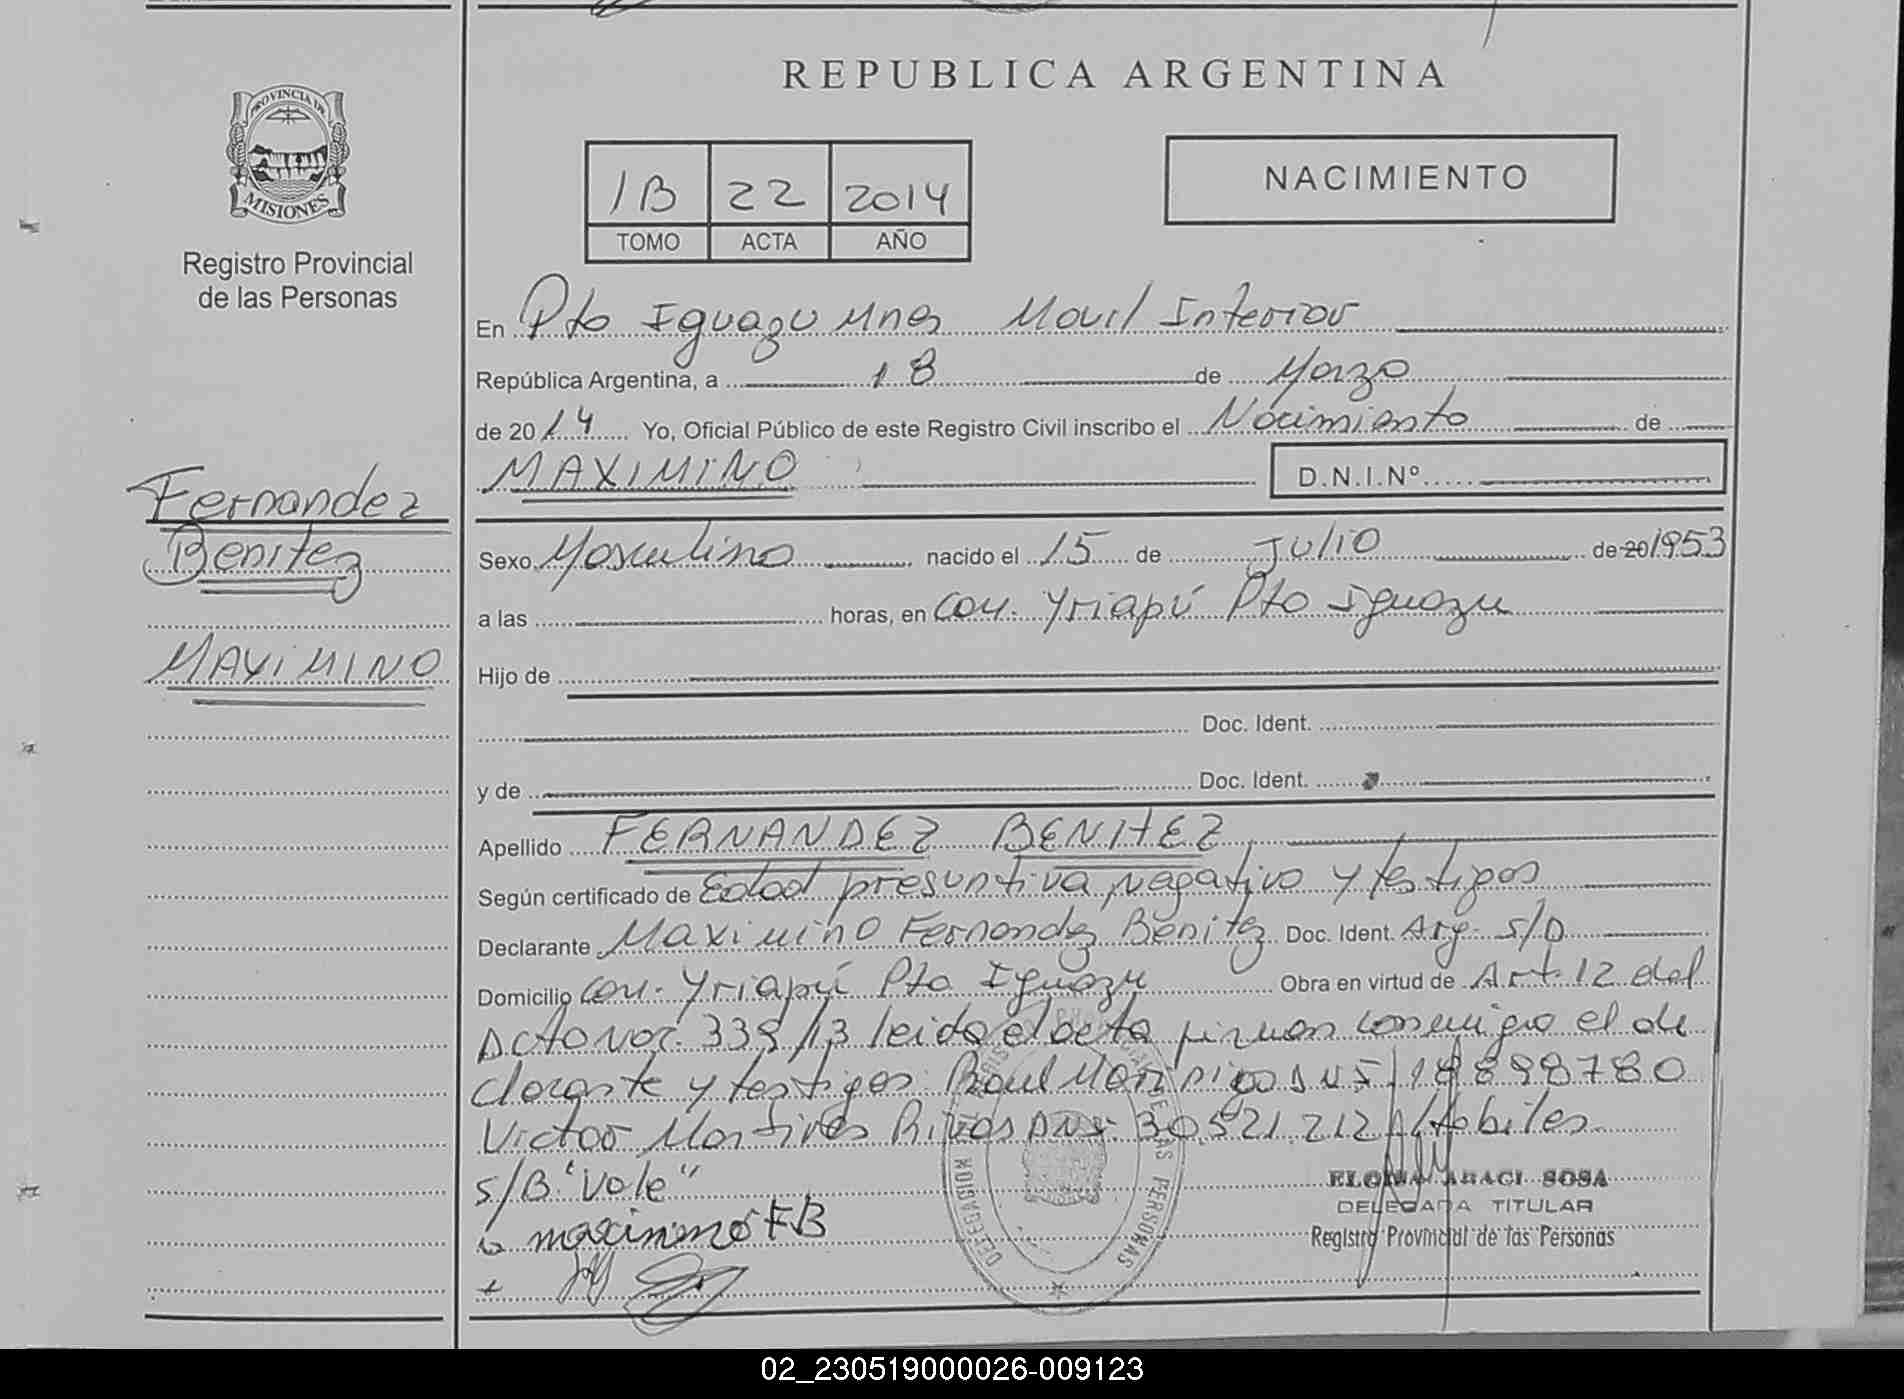 REPUBLICA ARGENTINA
PROVINCIA DE
MISIONES
Registro Provincial
de las Personas
1B 22 2014
TOMO ACTA AÑO
NACIMIENTO
En Pto Iguazu Mnes Movil Interior
República Argentina, a 18 de Marzo
de 2014 Yo, Oficial Público de este Registro Civil inscribo el Nacimiento de
MAXIMINO D.N.I.Nº
Fernandez
Benitez
MAXIMINO
Sexo Masculino nacido el 15 de Julio de 20 1953
a las horas, en Com. Yriapú Pto Iguazu
Hijo de
Doc. Ident.
y de Doc. Ident.
Apellido FERNANDEZ BENITEZ
Según certificado de Edad presuntiva, negativo y testigos
Declarante Maximino Fernandez Benitez Doc. Ident. Arg. S/D
Domicilio Com. Yriapú Pto Iguazu Obra en virtud de Art. 12 del
Dcto Nac. 339/13 leida el acta firman conmigo el de
clarante y testigos: Raul DNI 18898780
Victor Martires Rivas DNI 30.521.212 Habiles
s/B "Vale"
maximino FB
DELEGADA TITULAR
Registro Provincial de las Personas
02_230519000026-009123